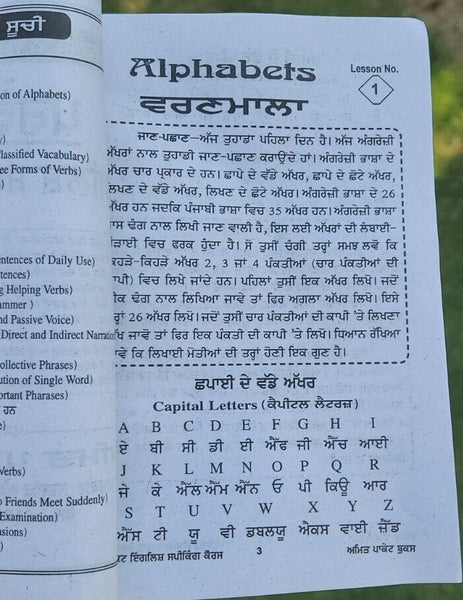 ਸੂਚੀ
on of Alphabets)
y)
lassified Vacabulary)
ee Forms of Verbs)
s)
entences of Daily Use)
tences)
g Helping Verbs)
ammer )
nd Passive Voice)
Direct and Indirect Narration
ollective Phrases)
ution of Single Word)
ortant Pharases)
ਹਨ
e)
Verbs)
o Friends Meet Suddenly)
Examination)
sions)
)
Alphabets
Lesson No.
1
ਵਰਣਮਾਲਾ
ਜਾਣ-ਪਛਾਣ–ਅੱਜ ਤੁਹਾਡਾ ਪਹਿਲਾ ਦਿਨ ਹੈ। ਅੱਜ ਅੰਗਰੇਜ਼ੀ
ਅੱਖਰਾਂ ਨਾਲ ਤੁਹਾਡੀ ਜਾਣ-ਪਛਾਣ ਕਰਾਉਂਦੇ ਹਾਂ। ਅੰਗਰੇਜ਼ੀ ਭਾਸ਼ਾ ਦੇ
ਅੱਖਰ ਚਾਰ ਪ੍ਰਕਾਰ ਦੇ ਹਨ। ਛਾਪੇ ਦੇ ਵੱਡੇ ਅੱਖਰ, ਛਾਪੇ ਦੇ ਛੋਟੇ ਅੱਖਰ,
ਲਿਖਣ ਦੇ ਵੱਡੇ ਅੱਖਰ, ਲਿਖਣ ਦੇ ਛੋਟੇ ਅੱਖਰ। ਅੰਗਰੇਜ਼ੀ ਭਾਸ਼ਾ ਦੇ 26
ਅੱਖਰ ਹਨ ਜਦਕਿ ਪੰਜਾਬੀ ਭਾਸ਼ਾ ਵਿਚ 35 ਅੱਖਰ ਹਨ। ਅੰਗਰੇਜ਼ੀ ਭਾਸ਼ਾ
ਖ਼ਾਸ ਢੰਗ ਨਾਲ ਲਿਖੀ ਜਾਣ ਵਾਲੀ ਹੈ, ਇਸ ਲਈ ਅੱਖਰਾਂ ਦੀ ਲੰਬਾਈ-
ਚੌੜਾਈ ਵਿਚ ਫਰਕ ਹੁੰਦਾ ਹੈ। ਸੋ ਤੁਸੀਂ ਚੰਗੀ ਤਰ੍ਹਾਂ ਸਮਝ ਲਵੋ ਕਿ
ਕਿਹੜੇ-ਕਿਹੜੇ ਅੱਖਰ 2, 3 ਜਾਂ 4 ਪੰਕਤੀਆਂ (ਚਾਰ ਪੰਕਤੀਆਂ ਦੀ
ਕਾਪੀ) ਵਿਚ ਲਿਖੇ ਜਾਂਦੇ ਹਨ। ਪਹਿਲਾਂ ਤੁਸੀਂ ਇਕ ਅੱਖਰ ਲਿਖੋ। ਜਦੋਂ
ਠੀਕ ਢੰਗ ਨਾਲ ਲਿਖਿਆ ਜਾਵੇ ਤਾਂ ਫਿਰ ਅਗਲਾ ਅੱਖਰ ਲਿਖੋ। ਇਸੇ
ਤਰ੍ਹਾਂ 26 ਅੱਖਰ ਲਿਖੋ। ਜਦੋਂ ਤੁਸੀਂ ਚਾਰ ਪੰਕਤੀਆਂ ਦੀ ਕਾਪੀ 'ਤੇ ਲਿਖਣਾ
ਸਿੱਖ ਜਾਵੋ ਤਾਂ ਫਿਰ ਇਕ ਪੰਕਤੀ ਦੀ ਕਾਪੀ 'ਤੇ ਲਿਖੋ। ਧਿਆਨ ਰੱਖਿਆ
ਜਾਵੇ ਕਿ ਲਿਖਾਈ ਮੋਤੀਆਂ ਦੀ ਤਰ੍ਹਾਂ ਹੋਣੀ ਇਕ ਗੁਣ ਹੈ।
ਛਪਾਈ ਦੇ ਵੱਡੇ ਅੱਖਰ
Capital Letters (ਕੈਪੀਟਲ ਲੈਟਰਜ਼)
A B C D E F G H I
ਏ ਬੀ ਸੀ ਡੀ ਈ ਐੱਫ ਜੀ ਐੱਚ ਆਈ
J K L M N O P Q R
ਜੇ ਕੇ ਐੱਲ ਐੱਮ ਐੱਨ ਓ ਪੀ ਕਿਊ ਆਰ
S T U V W X Y Z
ਐੱਸ ਟੀ ਯੂ ਵੀ ਡਬਲਯੂ ਐਕਸ ਵਾਈ ਜ਼ੈੱਡ
ਇੰਗਲਿਸ਼ ਸਪੀਕਿੰਗ ਕੋਰਸ 3 ਅਮਿਤ ਪਾਕੇਟ ਬੁਕਸ